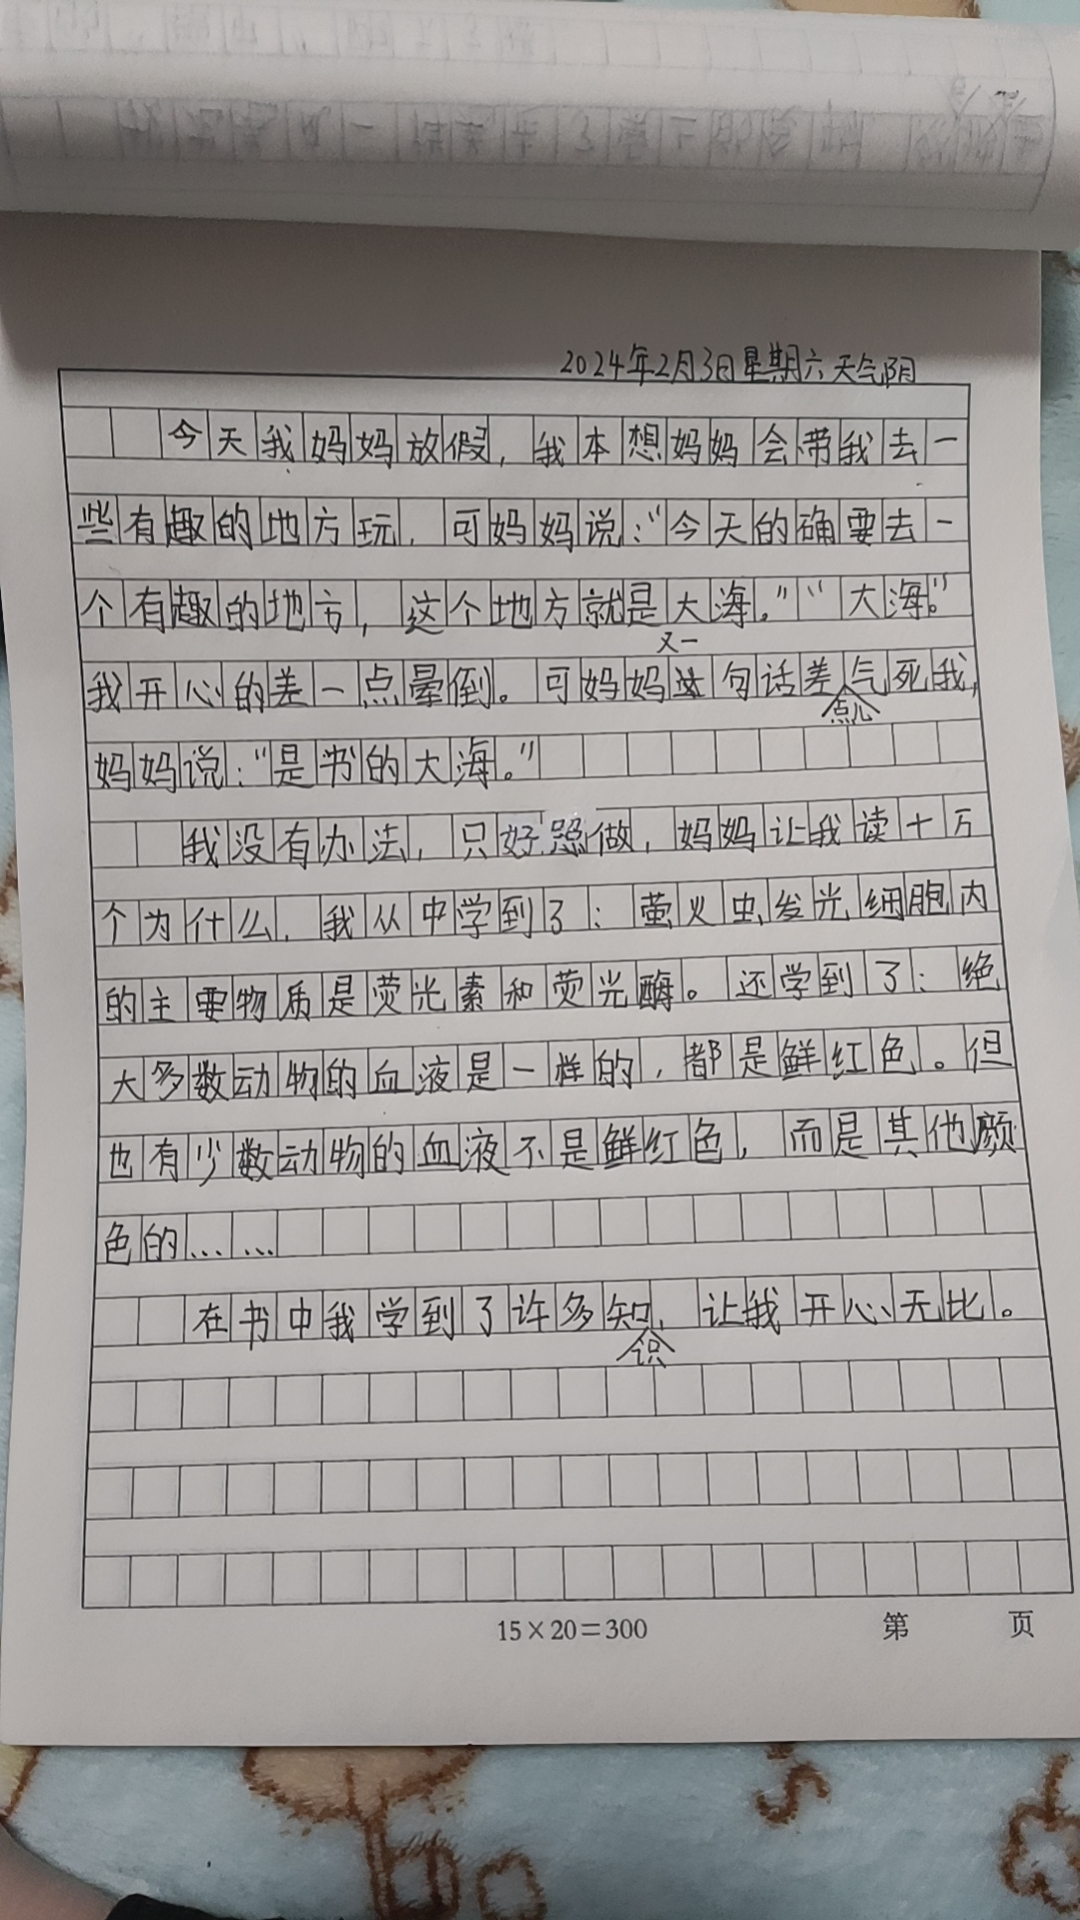 2024年2月3日星期六天气阴
今天我妈妈放假，我本想妈妈会带我去一
些有趣的地方玩，可妈妈说：“今天的确要去一
个有趣的地方，这个地方就是大海。”“大海。”
我开心的差一点晕倒。可妈妈又一句话差点儿气死我，
妈妈说：“是书的大海。”
我没有办法，只好照做，妈妈让我读十万
个为什么，我从中学到了：萤火虫发光细胞内
的主要物质是荧光素和荧光酶。还学到了：绝
大多数动物的血液是一样的，都是鲜红色。但
也有少数动物的血液不是鲜红色，而是其他颜
色的……
在书中我学到了许多知识，让我开心无比。
15×20＝300 第 页